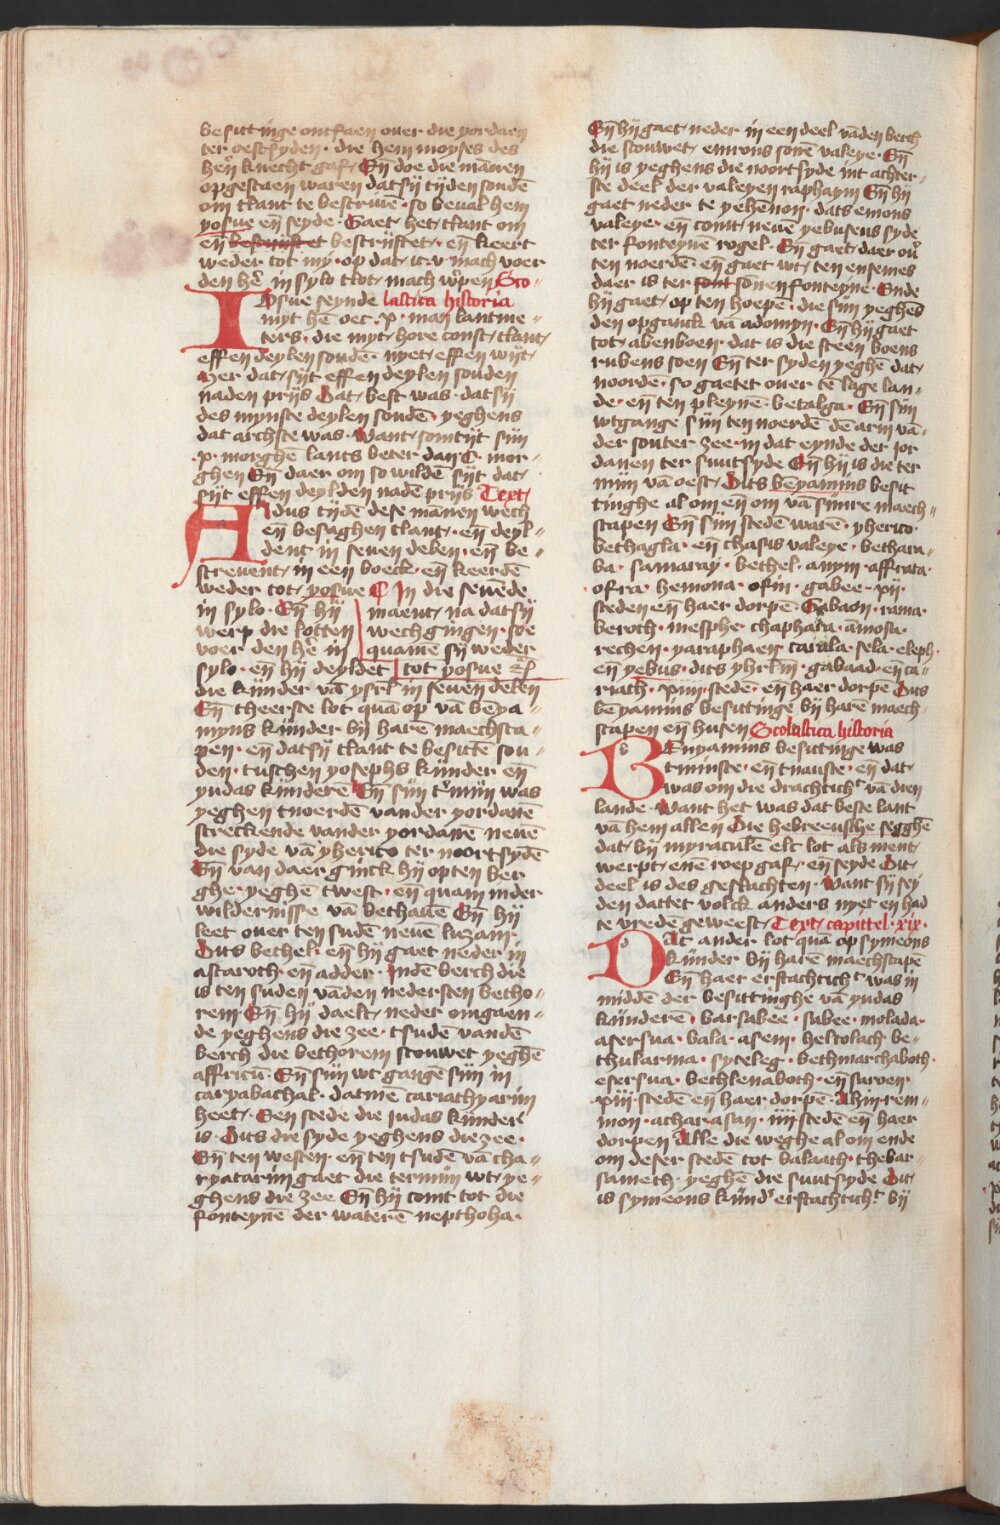 besittinge ontfaen ouer die yordaen
ter oestsyden · die hem moyses des
hērē knecht gaf · Eñ doe die mānen
opgestaen waren datsij tyden soudē
om tlant te bestruuē · so beual hem
yosue eñ seyde · Gaet · het tlant om
eñ bestrijftet bestrijftet · eñ keert
weder tot my · op dat ic v mach voer
den hē in sylo tlot · mach wpen Sco-
Iosue seynde lastica historia
myt hē oec · x · man lantme-
ters · die myt hore const tlant
effen deylen soudē · nyet effen wijt
Mer dat sijt effen deylen souden
naden prijs Dat best was · datsij
des mynste deylen soudē · yeghens
dat archste was · Want somtijt sijn
·x· morghē lants beter dan C · mor-
ghen Eñ daer om so wildē sijt dat
sijt effen deylden nadē prijs Text
Aldus tydē dese mānen wech
eñ besaghen tlant · eñ deyl-
dent in seuen delen · eñ be-
screuent in een boeck · eñ keerdē
weder tot yosue C In die seuēde
in sylo · Eñ hij maent na datsij
werp die lotten wechgingen · soe
voer den hē in quamē sy weder
sylo · eñ hij deyldet tot yosue
die kijnder vā ysrl in seuen delen
Eñ theerste lot quā op vā benya-
myns kijnder bij harē maechsca-
pen · eñ datsij tlant te besittē sou-
den · tuschen yosephs kijnder eñ
yudas kijnderē · Eñ sijn tmijn was
yeghen tnoerdē vander yordanē
streckende vander yordanē neuē
die syde vā yherico ter noortsydē
Eñ van daer ginck hij op ten ber
ghe yeghē twest · eñ quam inder
wildernisse vā bethauē Eñ hij
leet ouer ten sudē neue luzam ·
Dits bethel · eñ hij gaet neder in
astaroth · eñ adder · Inden berch die
is ten suden vāden nedersten betho-
rem · Eñ hij daelt neder omgaen-
de yeghens die zee · tsudē vandē
berch die bethorem scouwet yeghē
affricū · Eñ sijn wt gangē sijn in
caryabachal · datmē cariathyarim
heet · Een stede die iudas kijnder
is · Dits die syde yeghens die zee ·
Eñ ten westen · eñ ten tsudē vā cha-
ryatarim gaet die termijn wt ye-
ghens die zee Eñ hij comt tot die
fonteynē der waterē nepthoha ·
Eñ hij gaet neder in een deel vāden berch
die scouwet · emrons sonē valeye · Eñ
hij is yeghens die noortsyde int achter-
ste deel der valeyen raphaym Eñ hij
gaet neder te yehēnon · dats emons
valeye · eñ comt neuē yebusens syde
ter fonteynē rogel · Eñ gaet daer ouer
ten noerdē · eñ gaet wt ten ensemes
daer is ter font sonen fonteyne · Ende
hij gaet op ten hoepē · die sijn yeghēs
den opganck vā adomyn · Eñ hij gaet
tot abenboen · dat is die steen boens
rubens soen Eñ ter syden yeghē dat
noordē · so gaetet ouer te lage lan-
de · eñ ten pleynē · betalga · Eñ sijn
wtgange sijn ten noerdē dē arm vā-
der souter zee · in dat eynde der ior
danen ter suutsyde Eñ hij is die ter
mijn vā oest · Dits benyamins besit
tinghe al om eñ om vā sijnre maech-
scapen Eñ sijn stedē warē · yherico ·
bethagla · eñ chasis valeye · bethara-
ba · samaray · bethel · anym · affrata ·
· ofra · hemona · ofni · gabee · xij ·
steden eñ haer dorpē · Gabaon · rama ·
beroth · mesphe · chaphara · āmosa ·
rechen · yaraphaen · tarala · sela · eleph ·
eñ yebus · dits yhrlm · gabaad · eñ ca-
riath · xiiij · stedē · eñ haer dorpē Dits
benyamins besittinge bij harē maech-
scapen eñ husen Scolastica historia
Benyamins besittinge was
tminste · eñ tnauste · eñ dat
was om die drachticht vā dien
lande · Want het was dat beste lant
vā hem allen Die hebreeusche segghē
dat bij myraculē elc lot als ment
werpt · enē roep gaf · eñ seyde Dit
deel is des geslachten · Want sij sey
den dattet volck anders nyet en had
te vredē geweest · Text capittel xix ·
Dat ander lot quā op symeons
kijnder bij harē maechscapē
Eñ haer erftachticht was in
middē der besittinghe vā yudas
kijnderē · barsabee · sabee · molada ·
asersua · bala · asem · heltolach be-
thularma · syteleg · bethmarchaboth ·
esersua · bethlenaboth · eñ saroen ·
xiij · stedē eñ haer dorpē · Ahin rem-
mon · athar · asan · iiij stedē eñ haer
dorpen Alle die weghe al om ende
om deser stedē tot balaath · thebar-
sameth · yeghē die suutsyde Dit
is symeons kijnder erftachticht bij